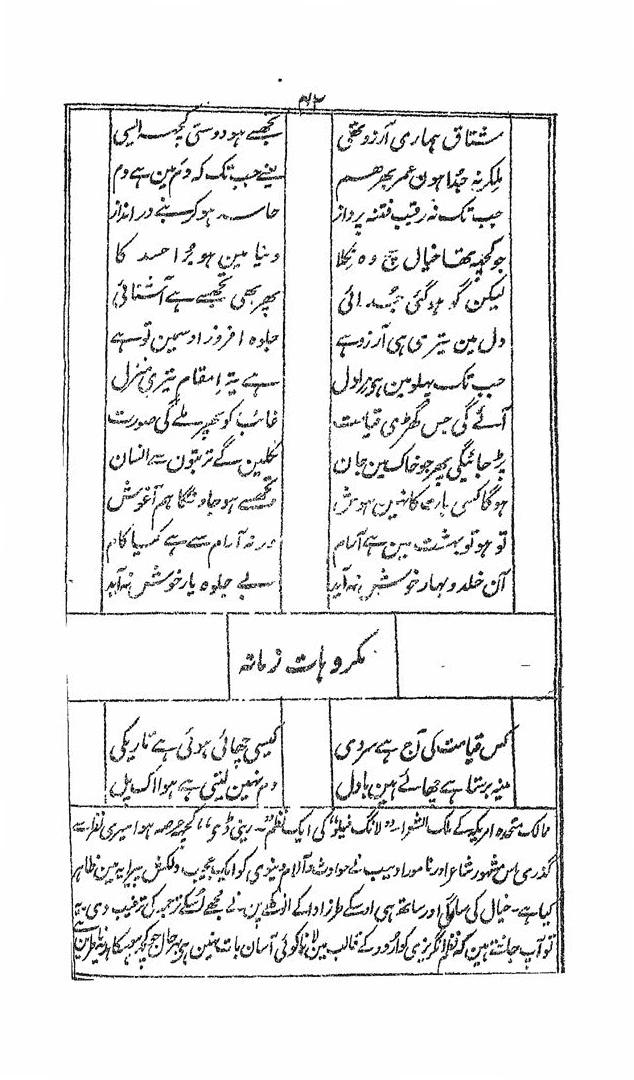 ۴۲
مشتاق ہماری آرزو تھی تجھسے ہو دوستی کچھ ایسی
ملکر نہ جدا ہون عمر بھر ہم یعنے جب تک کہ دم مین ہے دم
جب تک نہ رقیب فتنہ پرداز حاسد ہو کر بنے در انداز
جو کچھ تھا خیال سچ وہ نکلا دنیا مین ہو برا حسد کا
لیکن گو ہو گئی جدائی پھر بھی تجھسے ہے آشنائی
دل مین تیری ہی آرزو ہے جلوہ افروز اوسمین تو ہے
جب تک پہلو مین ہو مرا دل ہے یہ مقام تیری منزل
آئے گی جس گھڑی قیامت غائب کو پھر ملے گی صورت
پڑ جائیگی پھر جو خاک مین جان نکلین گے تربتون سے انسان
ہوگا کسی بات کا نہین ہوش تجھسے ہو جاونگا ہم آغوش
تو ہو تو بہشت مین ہے آرام ورنہ آرام سے ہے کیا کام
آن خلد و بہار خوش نہ آید بے جلوہ یار خوش نہ آید
مکروہات زمانہ
کس قیامت کی آج ہے سردی کیسی چھائی ہوئی ہے تاریکی
مینہ برستا ہے چھائے ہین بادل دم نہین لیتی ہے ہوا اک پل
ممالک متحدہ امریکہ کے ملک الشعراء "لانگ فیلو" کی ایک نظم "رینی ڈی" کچھ عرصہ ہوا میری نظر سے
گذری اس مشہور شاعر اور نامور ادیب نے حوادث و آلام دنیوی کو ایک عجیب دلکش پیرایہ مین ظاہر
کیا ہے۔ خیال کی سادگی اور ساتھ ہی اوسکے طرز ادا کے انوکھے پن نے مجھے اسکے ترجمہ کی ترغیب دی۔ یہ
تو آپ جانتے ہین کہ نظم انگریزی کو اردو کے قالب مین لانا کوئی آسان بات نہین ہے بہر حال جو کچھ ہو سکا ہدیہ ناظرین ہے